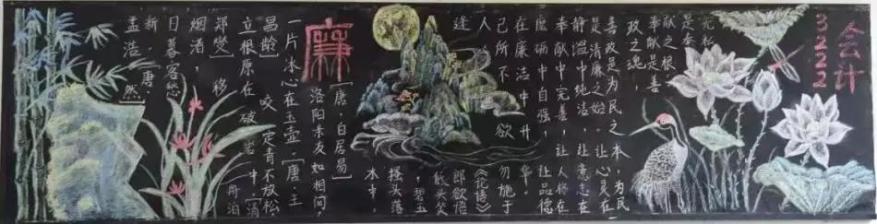 会计
3222
无私
是奉
献之根，
奉献是善
政之魂，
善政是为民之本，为民
是清廉之始，让心灵在
静谧中纯洁，让意志在
奉献中完善，让人格在
磨砺中自强，让品德
在廉洁中升华。
己所不欲 勿施于
人。《论语》
逢郎欲语
低头笑，碧玉
搔头落
水中。
[唐，白居易]
廉
洛阳亲友如相问，
一片冰心在玉壶[唐·王
昌龄]
咬定青不放松
立根原在破岩中[清
郑燮]
移舟泊
烟渚，
日暮客愁
新，[唐，
孟浩然]